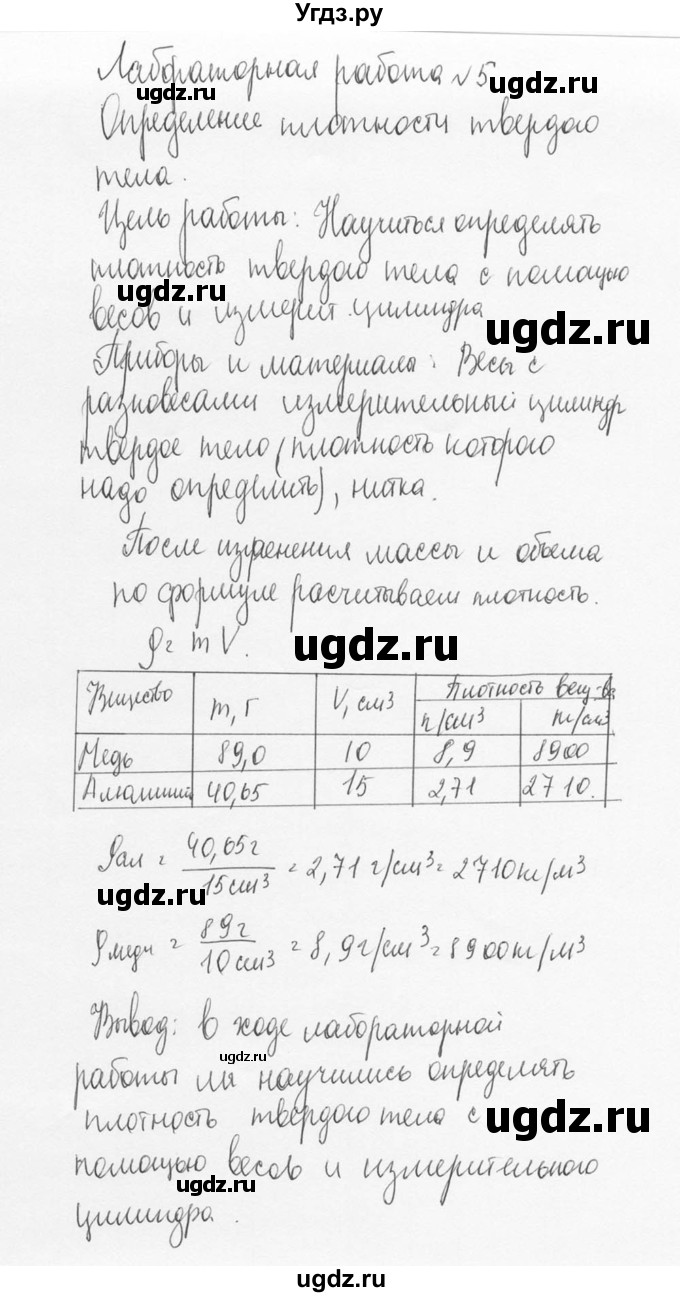 Угдз.ру
Лабораторная работа №5
ugdz.ru
ugdz.ru
Определение плотности твердого
тела.
Цель работы: Научиться определять
плотность твердого тела с помощью
ugdz.ru
весов и измерит. цилиндра
ugdz.ru
Приборы и материалы: Весы с
разновесами измерительный цилиндр
ugdz.ru
твердое тело (плотность которого
надо определить), нитка.
После измрения массы и объема
по формуле расчитываем плотность.
ρ = m V.
ugdz.ru
Вещество m, г V, см³ Плотность вещ-ва
г/см³ кг/см³
Медь 89,0 10 8,9 8900
Алюминий 40,65 15 2,71 2710.
ρал = 40,65г / 15см³ = 2,71 г/см³ = 2710кг/м³
ugdz.ru
ρмеди = 89г / 10см³ = 8,9г/см³ = 8900кг/м³
Вывод: в ходе лабораторной
ugdz.ru
работы мы научились определять
плотность твердого тела с
ugdz.ru
помощью весов и измерительного
ugdz.ru
цилиндра.
ugdz.ru